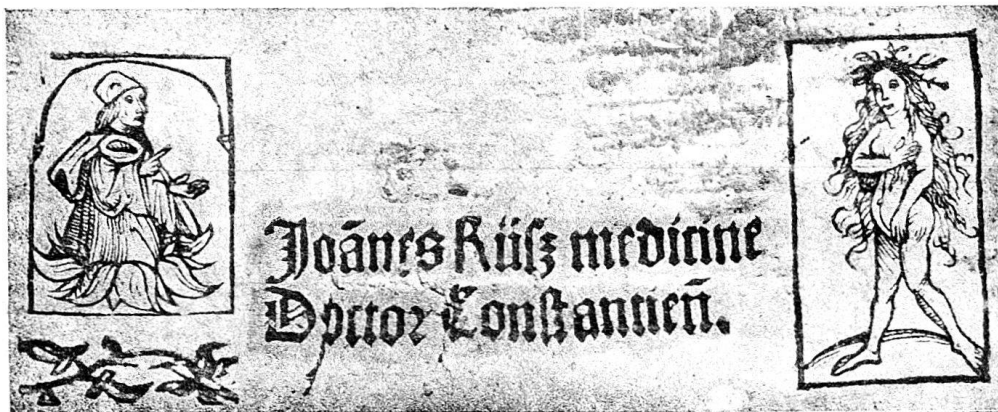 Joānes Rüſz medicine
Doctor Conſtantień.